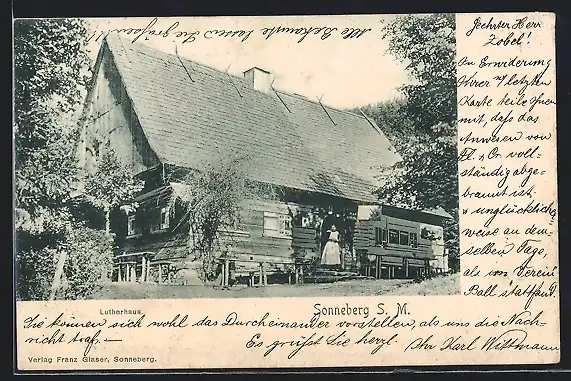 Alle Bekannte lassen Sie grüßen
Geehrter Herr
Zobel!
In Erwiderung
Ihrer letzten
Karte teile Ihnen
mit, daß das
Anwesen von
Fl. & Or. voll-
ständig abge-
brannt ist
& unglücklich-
weise an dem-
selben Tage,
als im Verein
Ball stattfand.
Lutherhaus.
Sonneberg S. M.
Sie können sich wohl das Durcheinander vorstellen, als uns die Nach-
richt traf. —
Es grüßt Sie herzl. Ihr Karl Wittmann
Verlag Franz Glaser, Sonneberg.